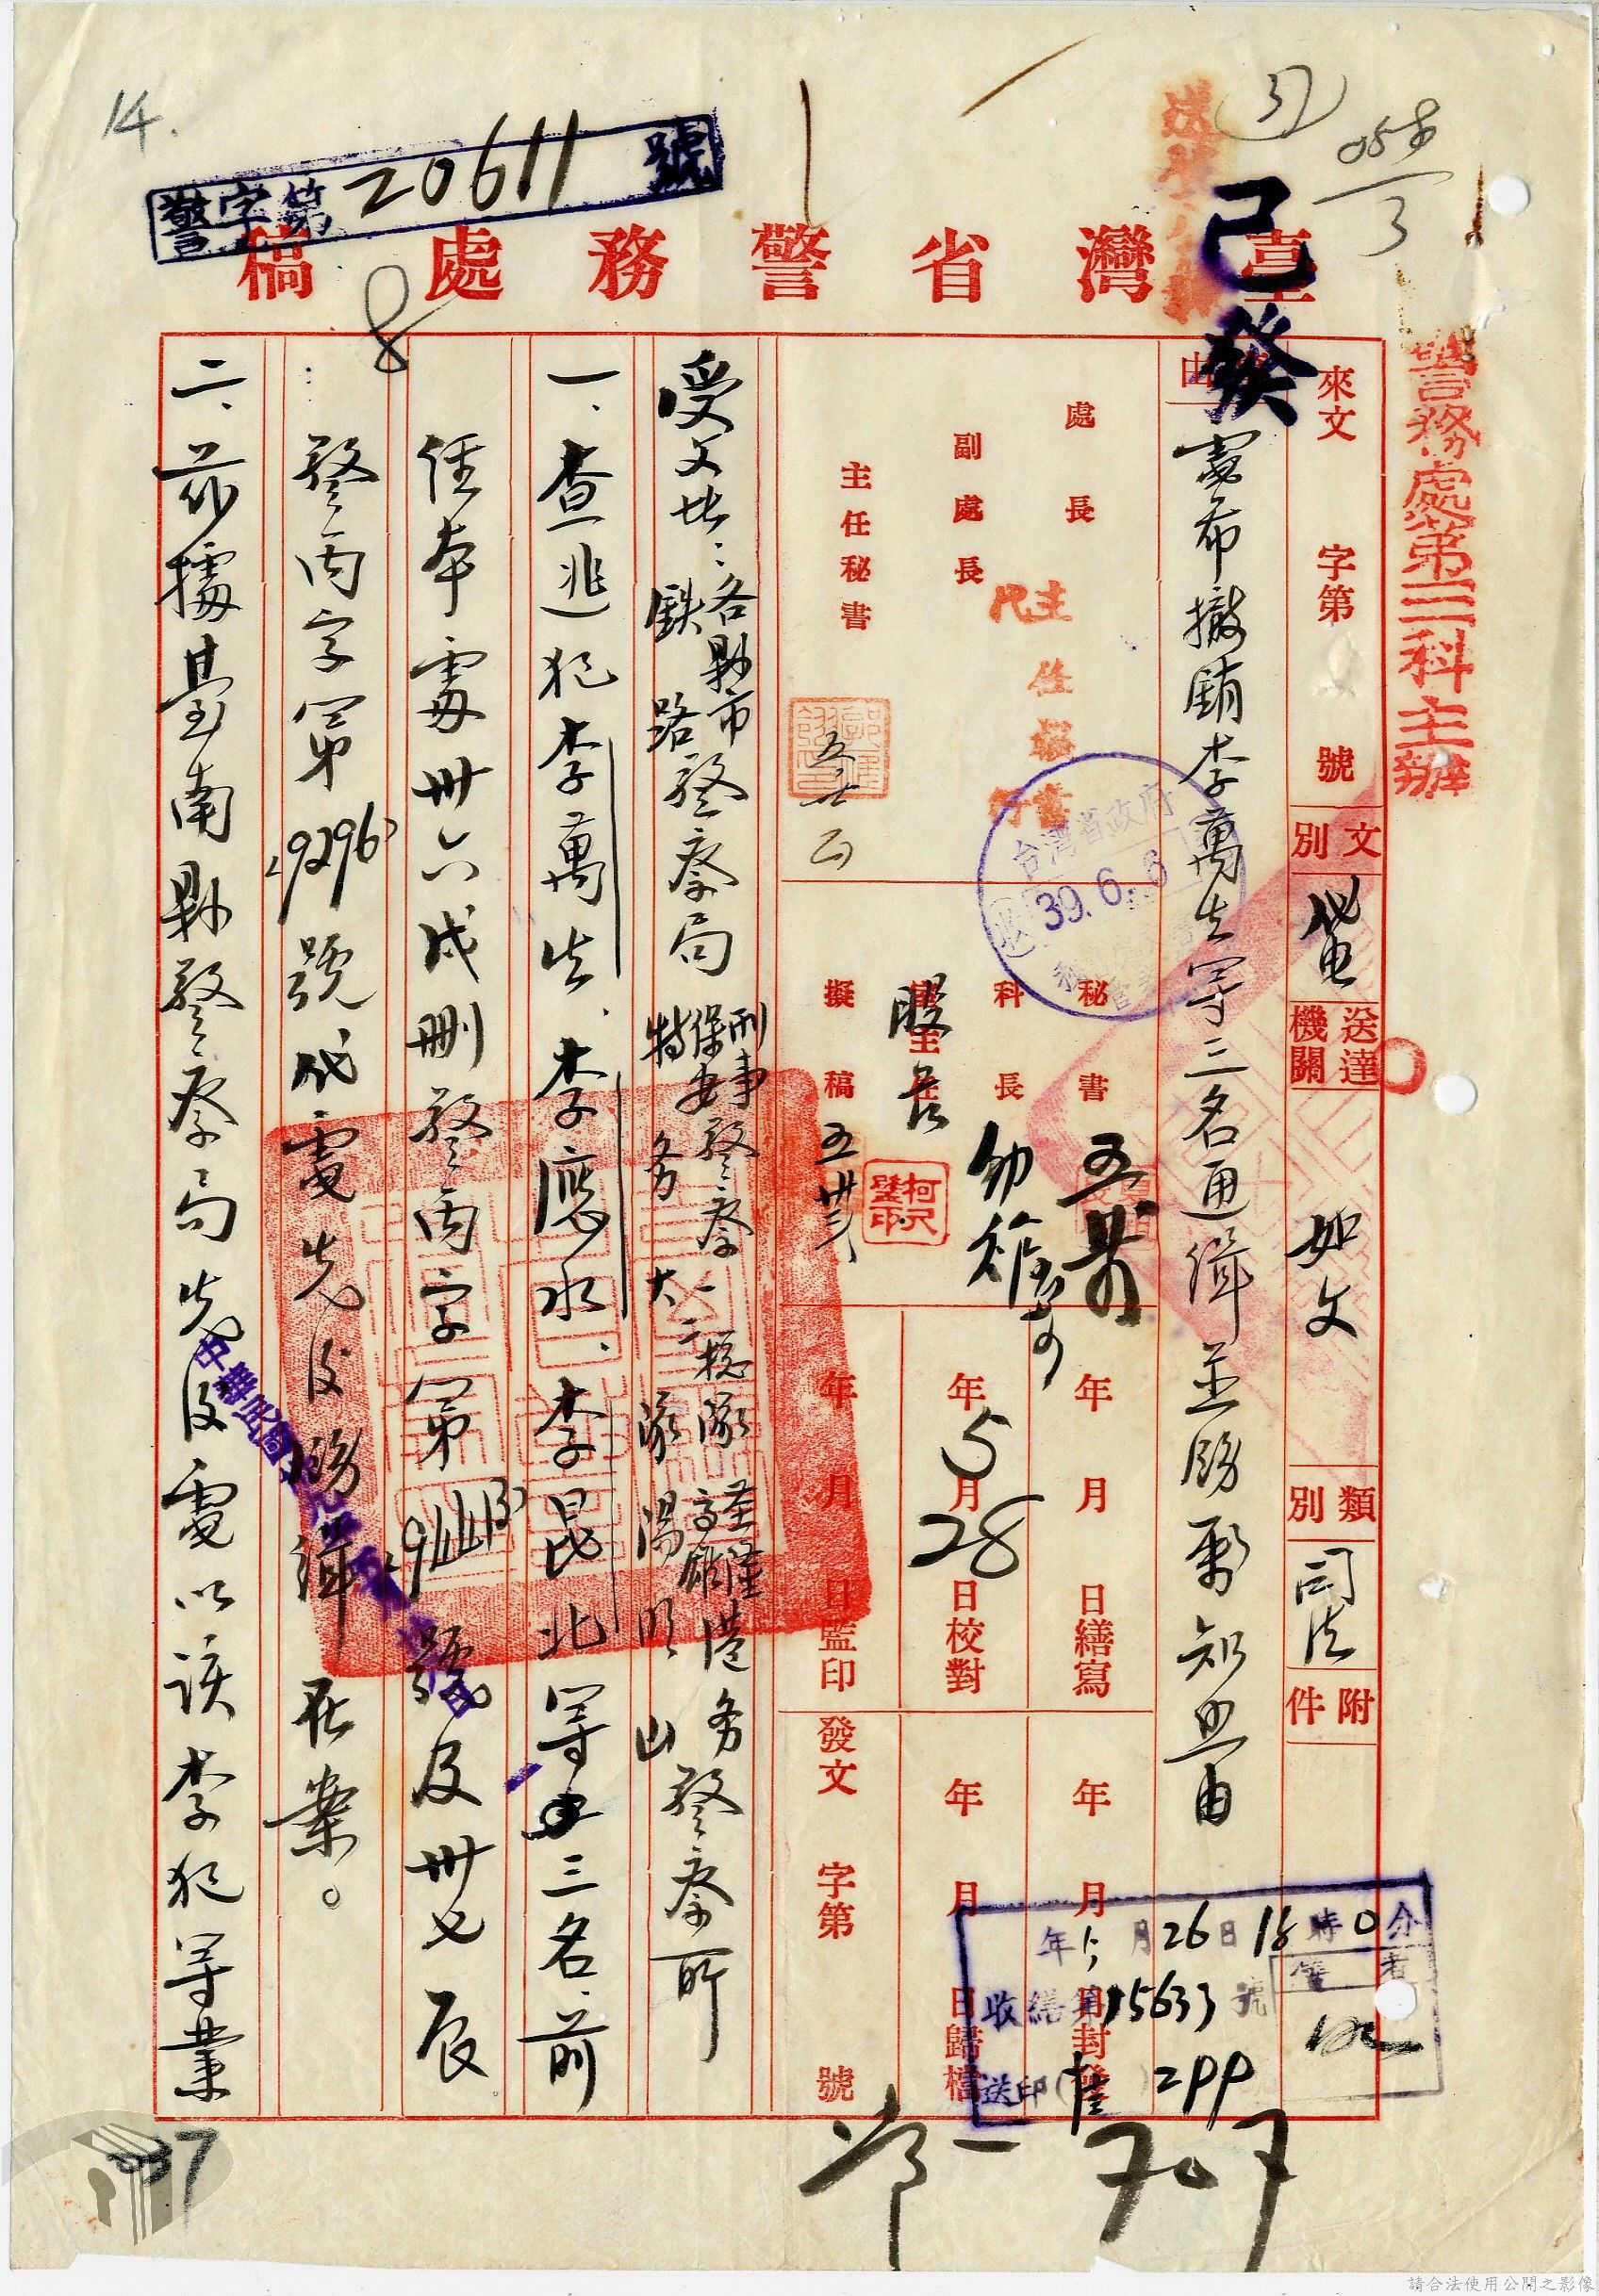 14.
警字第20611號
臺灣省警務處稿
已發
警務處第三科主辦
來文 字第 號
文別 代電
送達機關 如文
類別 司法
附件
事由 電希撤銷李萬生等三名通緝並賜飭知照由
處長
副處長
主任秘書
主任秘書
代
台灣省政府
39.6.6
秘書
科長
股長
擬稿 五廿三
柯尺璧印
年 月 日繕寫
年5月28日校對
年 月 日監印
年 月 日封發
年 月 日歸檔
發文 字第 號
年5月26日18時0分
收繕第15633號
送印
受文者:各縣市鐵路警察局 刑事保安警察一二總隊 特務大隊 基隆高雄港務警察所 陽明山
一、查逃犯李萬生、李應水、李昆北等三名,前
經本處卅六戌刪警丙字第 號及卅七辰
警丙字第19296號代電先後飭緝在案。
二、茲據臺南縣警察局先後電以該李犯等業
37
請合法使用公開之影像